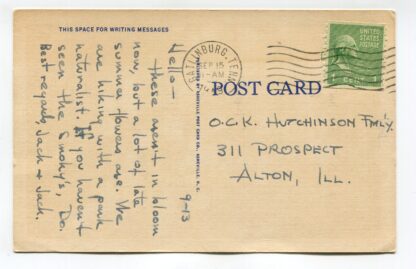 THIS SPACE FOR WRITING MESSAGES
9-13
Hello—
These aren't in bloom
now, but a lot of late
summer flowers are. We
are hiking with a park
naturalist. If you haven't
seen the Smoky's, Do.
Best regards, Jack + Jack.
GATLINBURG, TENN.
SEP 15
-AM
POST CARD
O.C.K. HUTCHINSON FM'LY.
311 PROSPECT
ALTON, ILL.
ASHEVILLE POST CARD CO., ASHEVILLE, N. C.